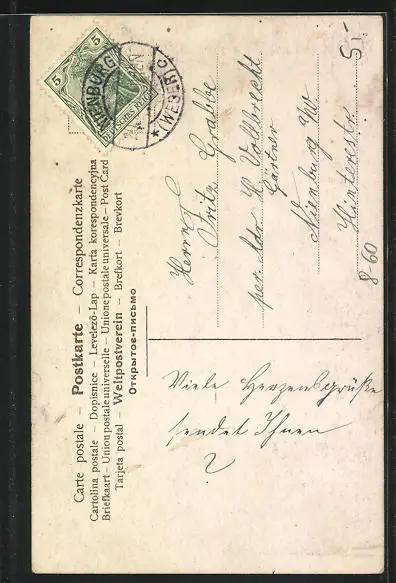 Carte postale – Postkarte – Correspondenzkarte
Cartolina postale – Dopisnice – Levelező-Lap – Karta korespondencyjna
Briefkaart – Union postale universelle – Unione postale universale – Post Card
Tarjeta postal Weltpostverein – Brefkort – Brevkort
Открытое-письмо
5 5
DEUTSCHES REICH
NIENBURG
* (WESER) c
Herrn
Fritz Grabbe
per. Adr. H. Vollbrecht
Gärtner
Nienburg a/W
Hinterstr.
Viele Herzensgrüße
sendet Ihnen
?
5,-
8-60